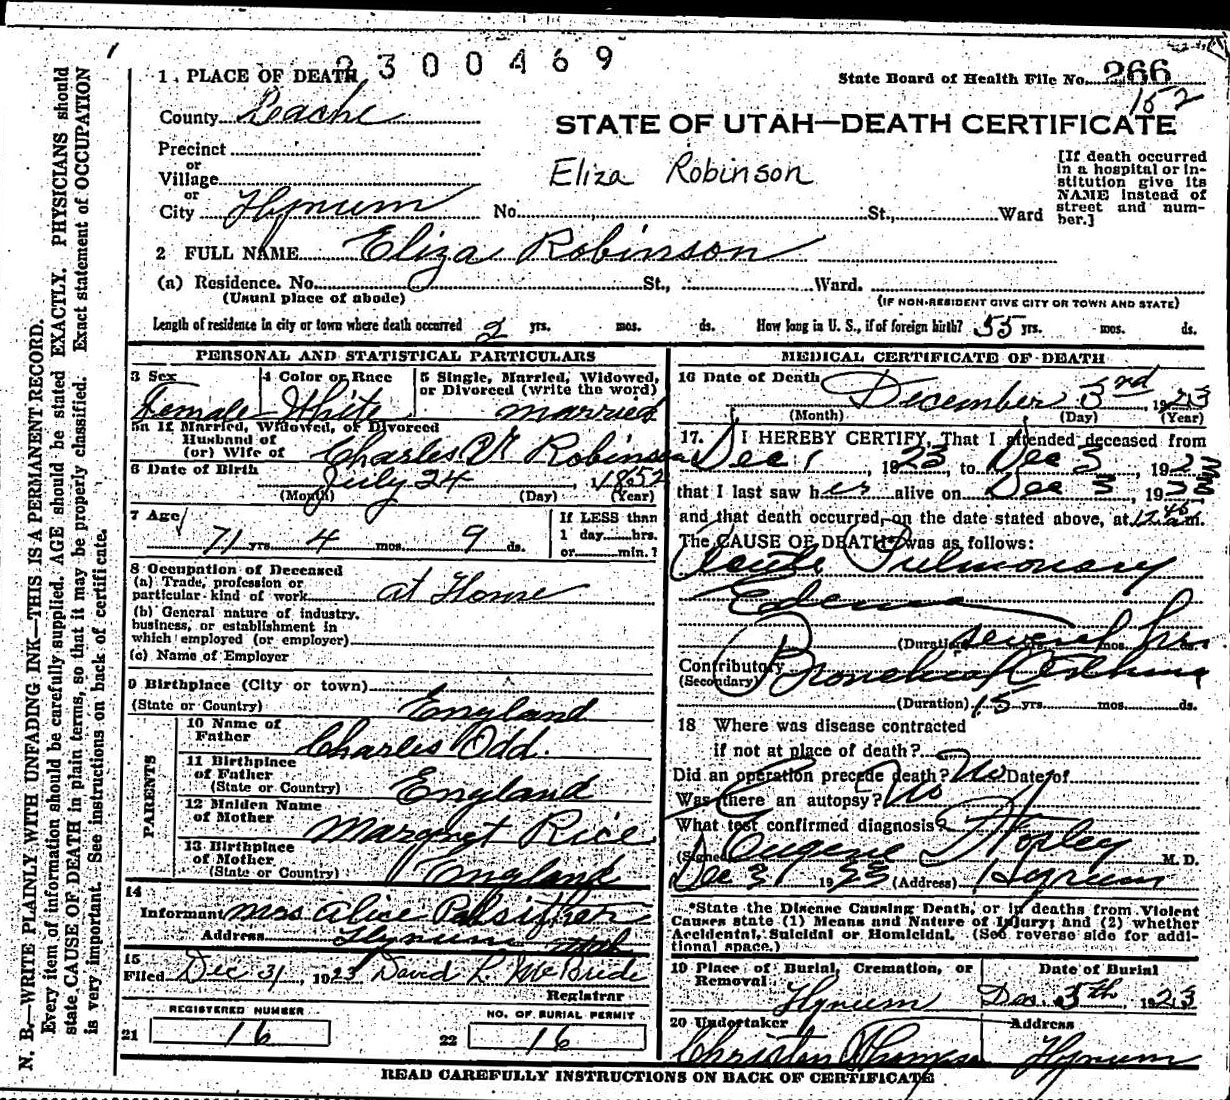 2300469
1. PLACE OF DEATH
State Board of Health File No. 266
152
County Cache
STATE OF UTAH—DEATH CERTIFICATE
Precinct
or
Village
or
City Hyrum No. St., Ward
Eliza Robinson
[If death occurred
in a hospital or in-
stitution give its
NAME instead of
street and num-
ber.]
2 FULL NAME Eliza Robinson
(a) Residence. No. St., Ward.
(Usual place of abode)
(IF NON-RESIDENT GIVE CITY OR TOWN AND STATE)
Length of residence in city or town where death occurred 2 yrs. mos. ds. How long in U. S., if of foreign birth? 55 yrs. mos. ds.
PERSONAL AND STATISTICAL PARTICULARS
3 Sex
Female
4 Color or Race
White
5 Single, Married, Widowed,
or Divorced (write the word)
married
5a If Married, Widowed, or Divorced
Husband of
(or) Wife of Charles W Robinson
6 Date of Birth
July 24, 1852
(Month) (Day) (Year)
7 Age
71 yrs. 4 mos. 9 ds.
If LESS than
1 day hrs.
or min.?
8 Occupation of Deceased
(a) Trade, profession or
particular kind of work at Home
(b) General nature of industry,
business, or establishment in
which employed (or employer)
(c) Name of Employer
9 Birthplace (City or town)
(State or Country) England
PARENTS
10 Name of
Father Charles Odd.
11 Birthplace
of Father
(State or Country) England
12 Maiden Name
of Mother Margret Rice
13 Birthplace
of Mother
(State or Country) England
14
Informant Mrs Alice
Address Hyrum Utah
15
Filed Dec 31, 1923 David L McBride
Registrar
REGISTERED NUMBER
21 16
NO. OF BURIAL PERMIT
22 16
MEDICAL CERTIFICATE OF DEATH
16 Date of Death December 3rd, 1923
(Month) (Day) (Year)
17. I HEREBY CERTIFY, That I attended deceased from
Dec 1, 1923, to Dec 3, 192
that I last saw her alive on Dec 3, 19
and that death occurred, on the date stated above, at 12 45 a m.
The CAUSE OF DEATH* was as follows:
Acute Pulmonary
Edema
(Duration) several hrs. mos. ds.
Contributory Bronchial Asthma
(Secondary)
(Duration) 15 yrs. mos. ds.
18 Where was disease contracted
if not at place of death?
Did an operation precede death? No Date of
Was there an autopsy? No
What test confirmed diagnosis?
(Signed) Eugene Worley M. D.
Dec 31 1923 (Address) Hyrum
*State the Disease Causing Death, or in deaths from Violent
Causes state (1) Means and Nature of Injury; and (2) whether
Accidental, Suicidal or Homicidal. (See reverse side for addi-
tional space.)
19 Place of Burial, Cremation, or
Removal
Hyrum
Date of Burial
Dec. 5th, 1923
20 Undertaker
Christen Thompson
Address
Hyrum
READ CAREFULLY INSTRUCTIONS ON BACK OF CERTIFICATE
N. B.—WRITE PLAINLY WITH UNFADING INK—THIS IS A PERMANENT RECORD.
Every item of information should be carefully supplied. AGE should be stated EXACTLY. PHYSICIANS should
state CAUSE OF DEATH in plain terms, so that it may be properly classified. Exact statement of OCCUPATION
is very important. See instructions on back of certificate.